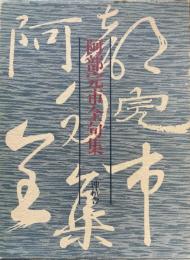 阿部完市
全句集
阿部完市全句集